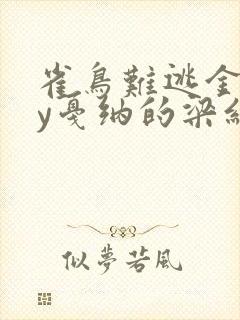 雀鳥難逃金
y戛纳的梁
似夢若風